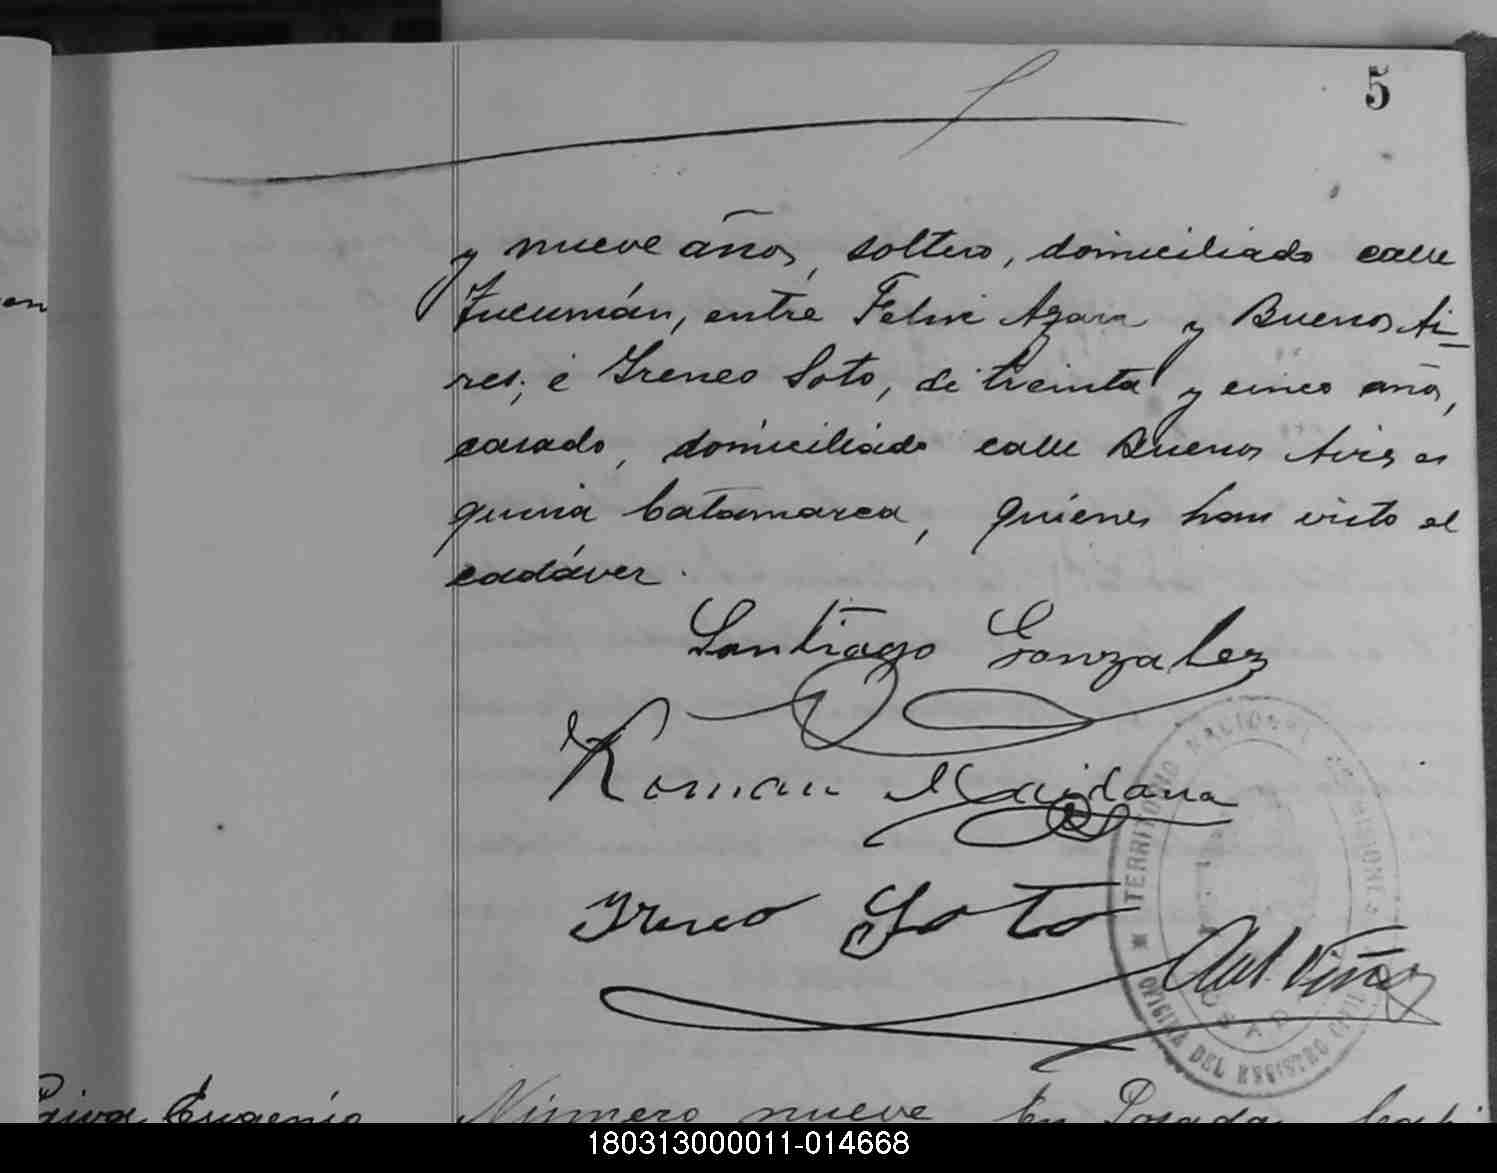 5
en
y nueve años, soltero, domiciliado calle
Tucumán, entre Felix Azara y Buenos Ai-
res; é Ireneo Soto, de treinta y cinco años,
casado, domiciliado calle Buenos Aires es
quina Catamarca, quienes han visto el
cadáver.
Santiago Gonzalez
Roman Maidana
Ireneo Soto
TERRITORIO NACIONAL DE MISIONES
OFICINA DEL REGISTRO CIVIL
POSADAS
Paiva Eugenio Número nueve En Posadas
180313000011-014668